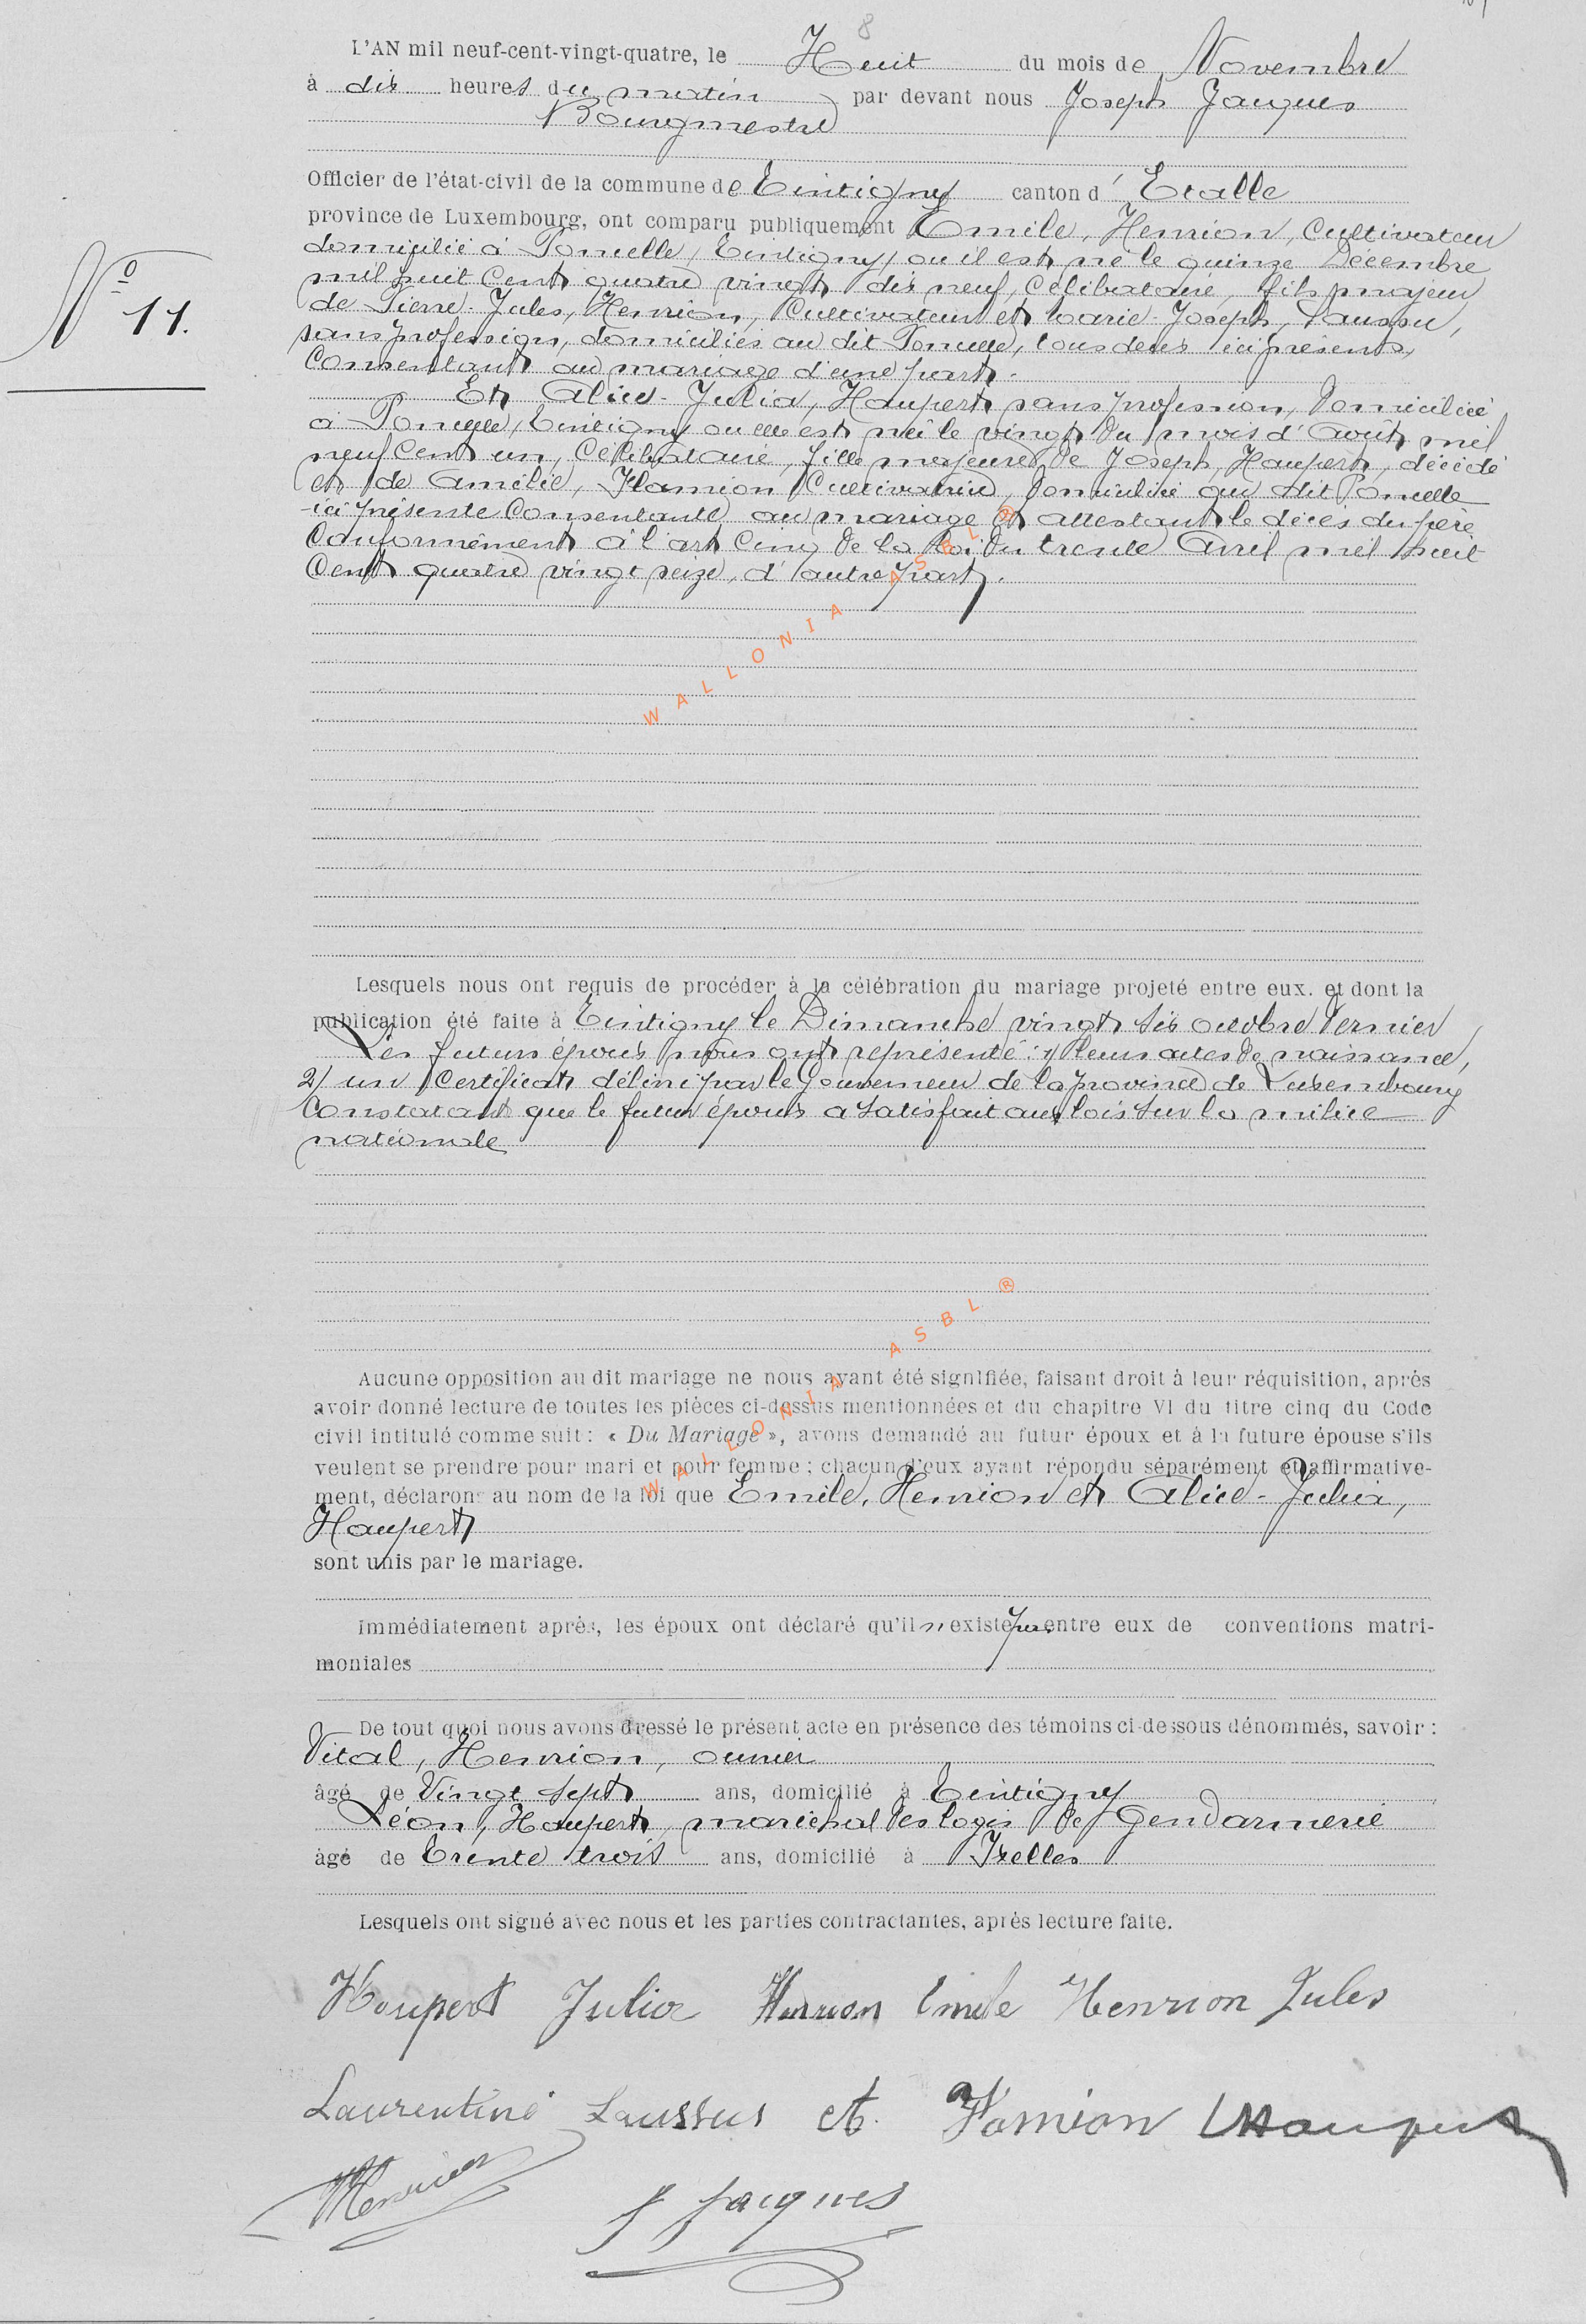 8
L'AN mil neuf-cent-vingt-quatre, le Huit du mois de Novembre
à dix heures du matin par devant nous Joseph Jacques
Bourgmestre
Officier de l'état-civil de la commune de Tintigny canton d'Etalle
province de Luxembourg, ont comparu publiquement Emile, Henrion, Cultivateur
domicilié à Poncelle / Tintigny / où il est né le quinze Décembre
mil huit Cent quatre vingt dix neuf, Célibataire, fils majeur
de Pierre-Jules, Henrion, Cultivateur et Marie-Joseph, Laussu,
sans profession, domiciliés au dit Poncelle, tous deux ici présents,
Consentant au mariage d'une part.
N° 11.
Et Alice-Julia, Haupert sans profession, Domiciliée
à Poncelle / Tintigny où elle est née le vingt du mois d'Août mil
neuf Cent un, Célibataire, fille majeure de Joseph, Haupert, décédé
et de Amélie, Hamion Cultivatrice, Domiciliée au dit Poncelle
ici présente Consentante au mariage et attestant le décès du père
Conformément à l'art Cinq de la loi du trente Avril mil huit
Cent quatre vingt seize, d'autre part.
WALLONIA ASBL ®
Lesquels nous ont requis de procéder à la célébration du mariage projeté entre eux. et dont la
publication été faite à Tintigny le Dimanche vingt six octobre dernier
Les futurs époux nous ont représenté : 1/ leurs actes de naissance,
2/ un Certificat délivré par le Gouverneur de la province de Luxembourg
Constatant que le futur époux a satisfait aux lois sur la milice
nationale
WALLONIA ASBL ®
Aucune opposition au dit mariage ne nous ayant été signifiée, faisant droit à leur réquisition, aprés
avoir donné lecture de toutes les piéces ci-dessus mentionnées et du chapitre VI du titre cinq du Code
civil intitulé comme suit : « Du Mariage », avons demandé au futur époux et à la future épouse s'ils
veulent se prendre pour mari et pour femme ; chacun d'eux ayant répondu séparément et affirmative-
ment, déclarons au nom de la loi que Emile, Henrion et Alice-Julia,
Haupert
sont unis par le mariage.
Immédiatement aprés, les époux ont déclaré qu'il n'existe pas entre eux de conventions matri-
moniales
De tout quoi nous avons dressé le présent acte en présence des témoins ci-dessous dénommés, savoir :
Vital, Henrion, ouvrier
âgé de Vingt Sept ans, domicilié à Tintigny
Léon, Haupert, maréchal des logis de Gendarmerie
âgé de Trente trois ans, domicilié à Ixelles
Lesquels ont signé avec nous et les parties contractantes, aprés lecture faite.
Haupert Julia Henrion Emile Henrion Jules
Laurentine Laussus et. Hamion LHaupert
Henrion J Jacques